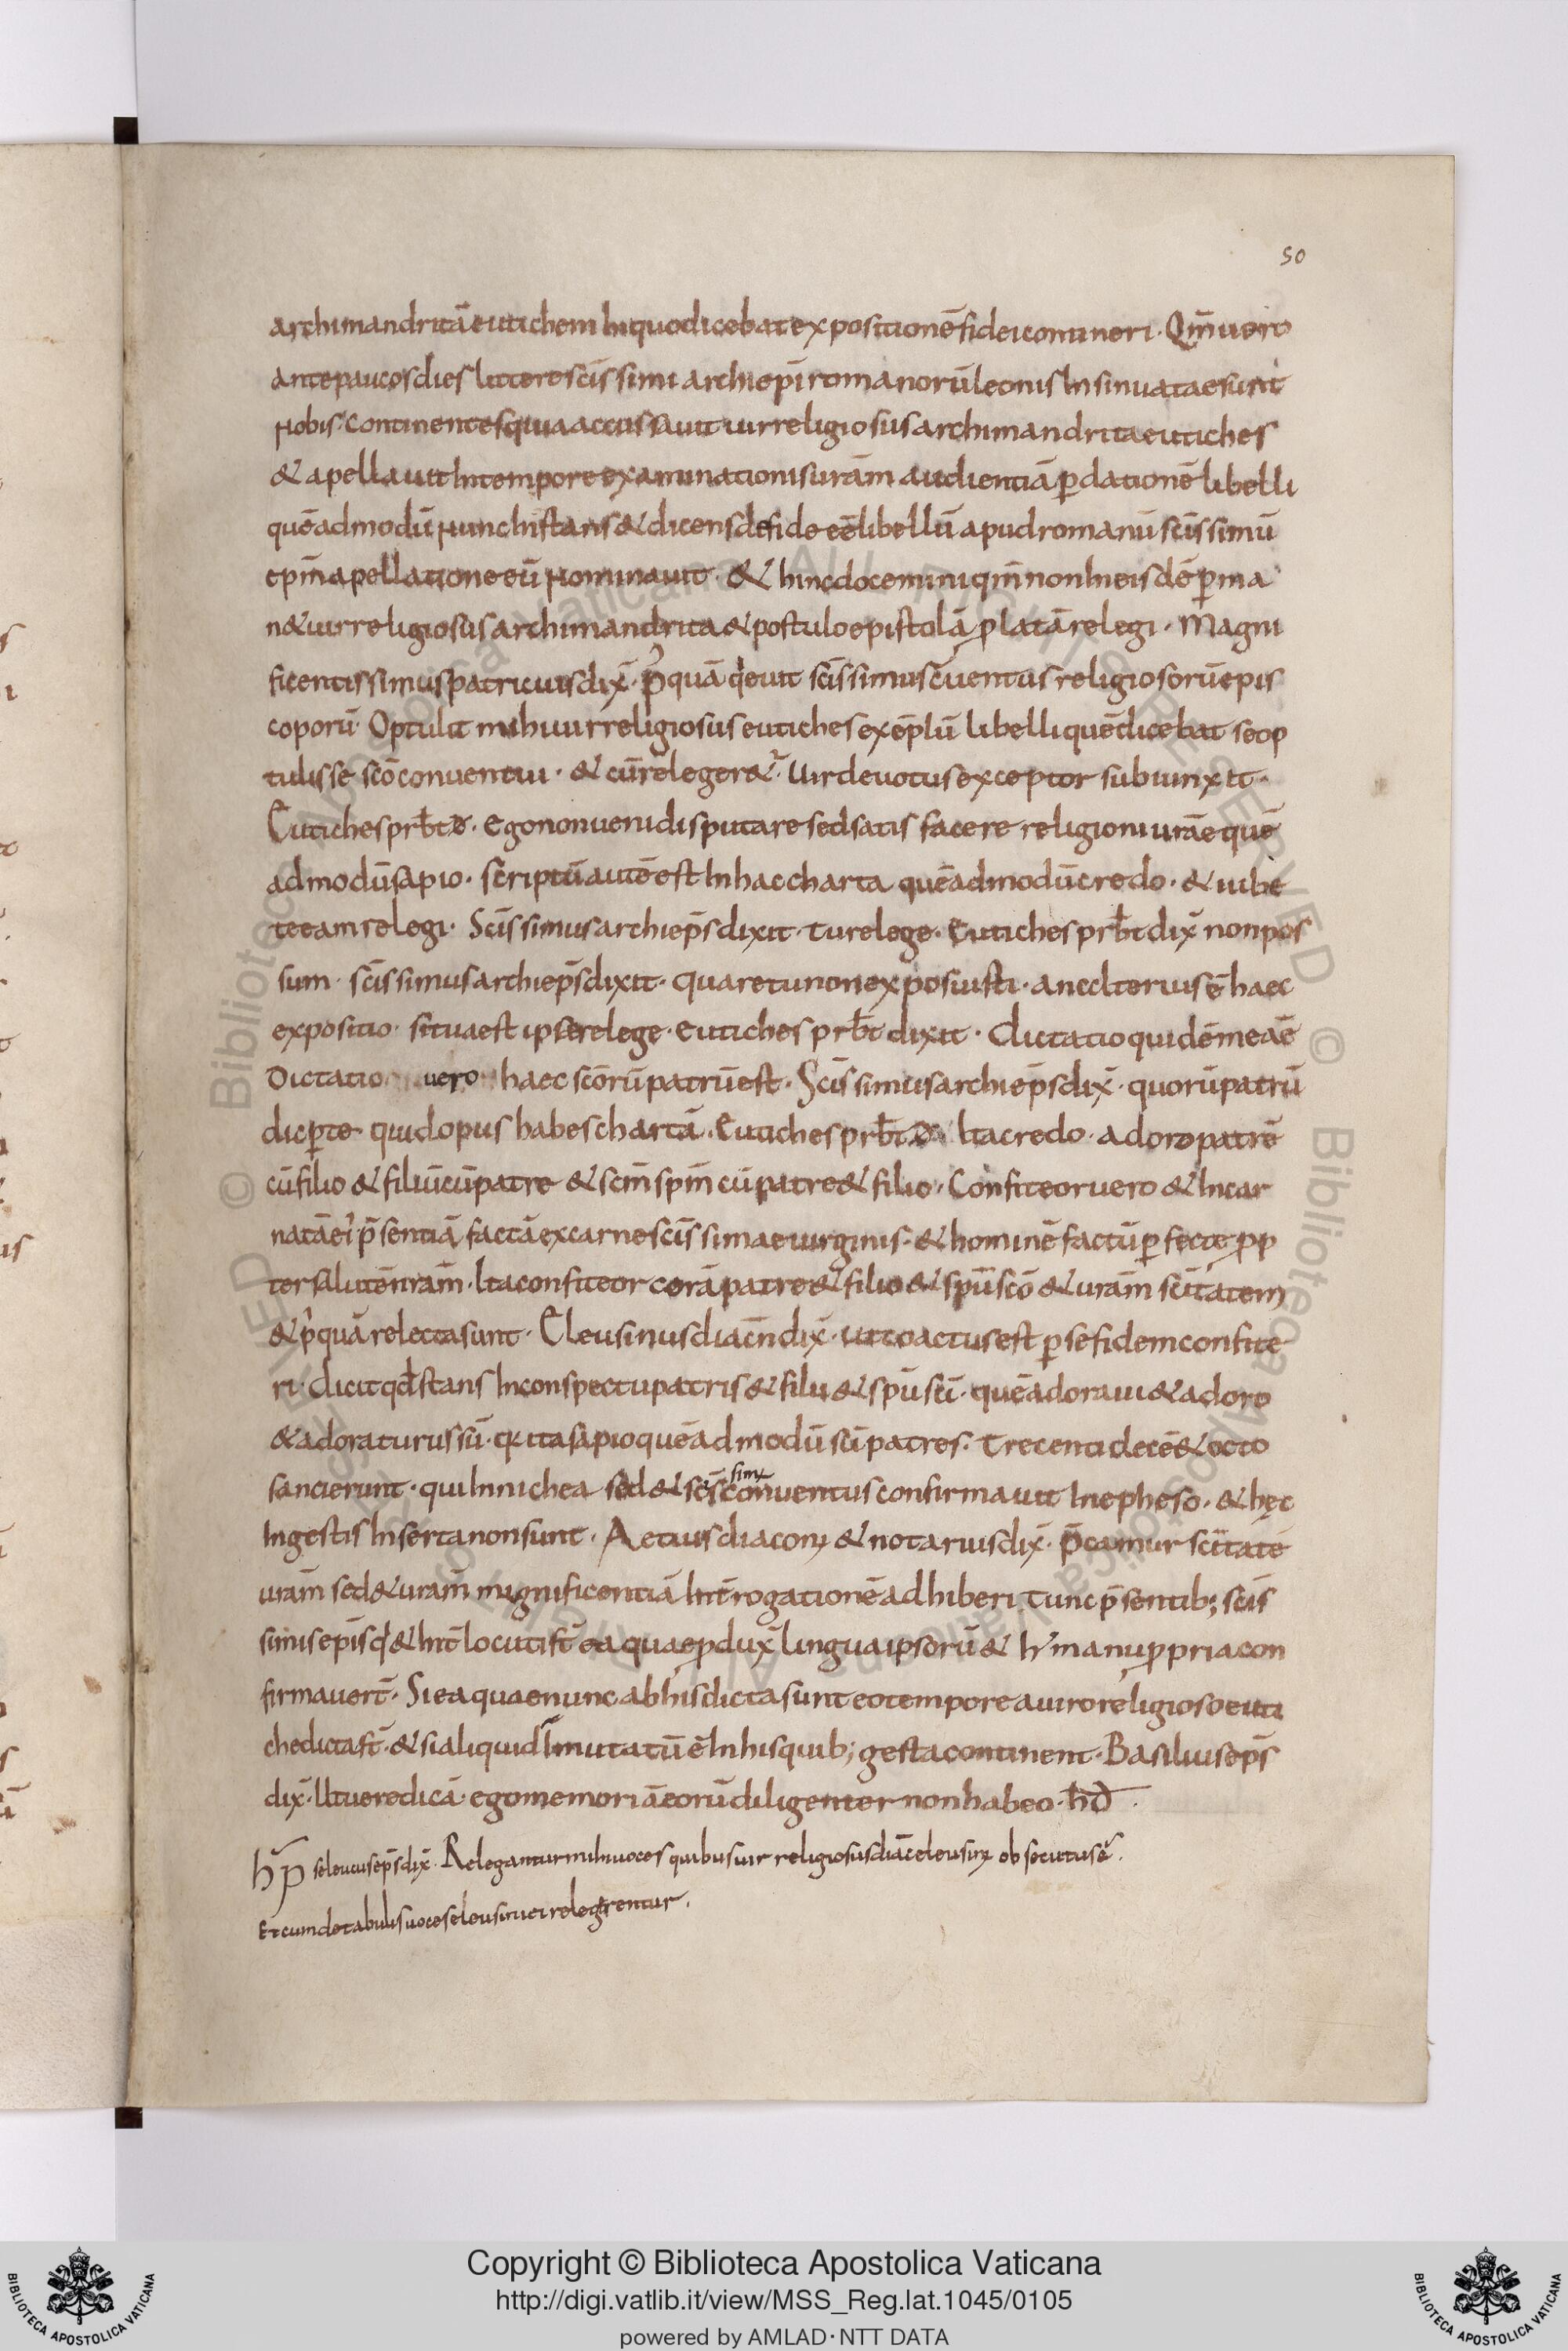 50
archimandritā eutichem In quo dicebat expositionē fidei contineri · Qm̄ uero
ante paucos dies littere sc̄issimi archiepi romanorū leonis Insinuatae sunt
nobis · continentes quia accussauit uir religiosus archimandrita eutiches
& apellauit In tempore examinationis urām audientiā ꝑ dationē libelli
quēadmodū nunc hi stans & dicens de fide eē libellū apud romanū sc̄issimū
epm̄ apellatione eū nominauit · & hinc docemini qm̄ non In eisdē ꝑma
n& uir religiosus archimandrita & postulo epistolā ꝓlatā relegi · Magni
ficentissimus patricius dix̄ · p̄ quā q̇euit sc̄issimus c̄uentus religiosorū epis
coporū · Optulit mihi uir religiosus eutiches exēplū libelli quē dicebat se op
tulisse sc̄o conuentui · & cū releger&ʼ · Uir deuotus exceptor subiunxit ·
Eutiches prb̄t · Ego non ueni disputare sed satis facere religioni urāe quē
admodū sapio · scriptū autē est In hac charta quēadmodū credo · & iube
te eam relegi · Sc̄issimus archiep̄s dixit · tu relege · Eutiches prb̄t dix̄ non pos
sum · sc̄issimus archiep̄s dixit · quare tu non exposuisti · an eclterius ē haec
expositio · si tua est ipse relege · eutiches prb̄t dixit · Dictatio quidē mea ē
Dictatio uero haec sc̄orū patrū est · Sc̄issimus archiep̄s dix̄ · quorū patrū
dic ꝑte quid opus habes chartā · Eutiches prb̄t Ita credo · adoro patrē
cū filio & filiū cū patre & sc̄m spm̄ cū patre & filio · Confiteor uero & Incar
natā ei' p̄sentiā factā ex carne sc̄issimae uirginis · & hominē factū ꝑfecte ꝓp
ter salutē nrām · Ita confiteor corā patre & filio & spū sc̄o & urām sc̄itatem
& p'quā relecta sunt · Eleusinus diacn̄ dix̄ · ut coactus est ꝑ se fidem confite
ri · dicit qd̄ stans In conspectu patris & filii & spū sc̄i · quē adoraui & adoro
& adoraturus sū · q̄ ita sapio quēadmodū sc̄i patres · Trecenti decē & octo
sancierunt · qui In nichea sed & sc̄s simꝰ conuentus confirmauit In epheso · & hęc
In gestis Inserta non sunt · Aetius diaconꝰ & notarius dix̄ · p̄camur sc̄itatē
urām sed & urām magnificentiā Int̄rogationē adhiberi Tunc p̄sentib; sc̄is
simis epis̄ q' & hīc locuti st̄ ea quae ꝓdux̄ lingua ipsorū & h' manu ꝓpria con
firmauert̄ · Si ea quae nunc ab his dicta sunt eo tempore a uiro religioso euti
che dicta st̄ · & si aliquid Īmutatū ē In his quib; gesta continent · Basilius ep̄s
dix̄ · Ut uere dicā · ego memoriā eorū diligenter non habeo · h̄d̄ ·
h̄p̄ seleucus ep̄s dix̄ · Relegantur mihi uoces quibus uir religiosus diāc eleusinꝰ obsecutus ē ·
Et cum de tabulis uoces eleusinu ei relegerentur ·
Copyright © Biblioteca Apostolica Vaticana
http://digi.vatlib.it/view/MSS_Reg.lat.1045/0105
powered by AMLAD · NTT DATA
BIBLIOTECA APOSTOLICA VATICANA
BIBLIOTECA APOSTOLICA VATICANA